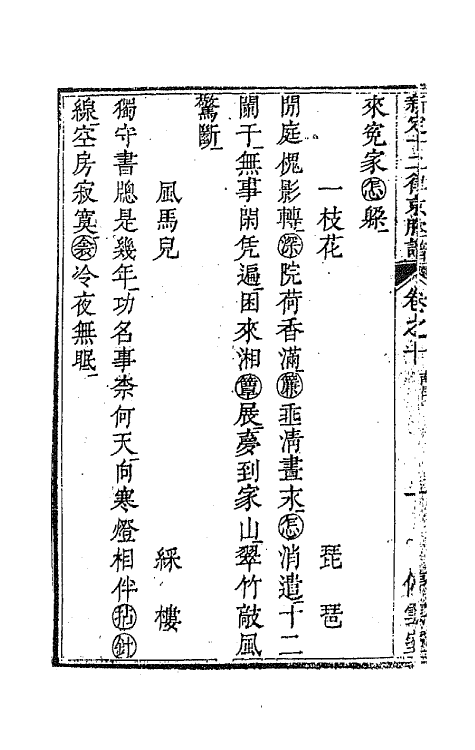 新定十二律京腔譜 卷之十
來寃家怎躱
一枝花 琵琶
閒庭槐影轉深院荷香滿簾垂淸晝永怎消遣十二
闌干無事閑凭遍困來湘簟展夢到家山翠竹敲風
驚斷
風馬兒 綵樓
獨守書牕是幾年功名事柰何天向寒燈相伴拈針
線空房寂寞衾冷夜無眠